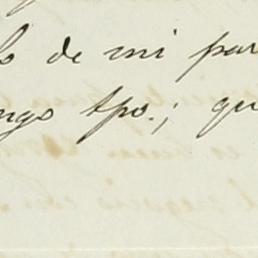 lo de mi par
ngo tpo.; qu